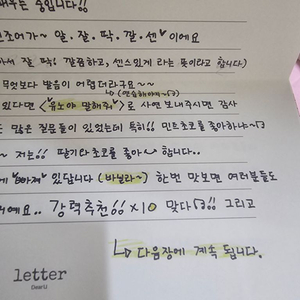 배우는 중입니다!!
신조어가~ 알.잘.딱.깔.센♥이에요
아서 잘 딱! 깔끔하고, 센스있게 라는 뜻이라고 합니다)
무엇보다 발음이 어렵더라구요~~
↳(연습해야게~)
있다면 <유노야 말해줘♥>로 사연 보내주시면 감사
도 많은 질문들이 있었는데 특히!! 민트초코를 좋아하냐~
~ 저는!! 딸기와초코를 좋아~ 합니다..
에 빠져 있답니다 (바닐라~) 한번 맛보면 여러분들도
거예요.. 강력추천!! ×10 맞다!! 그리고
↳ 다음장에 계속 됩니다.
letter
DearU